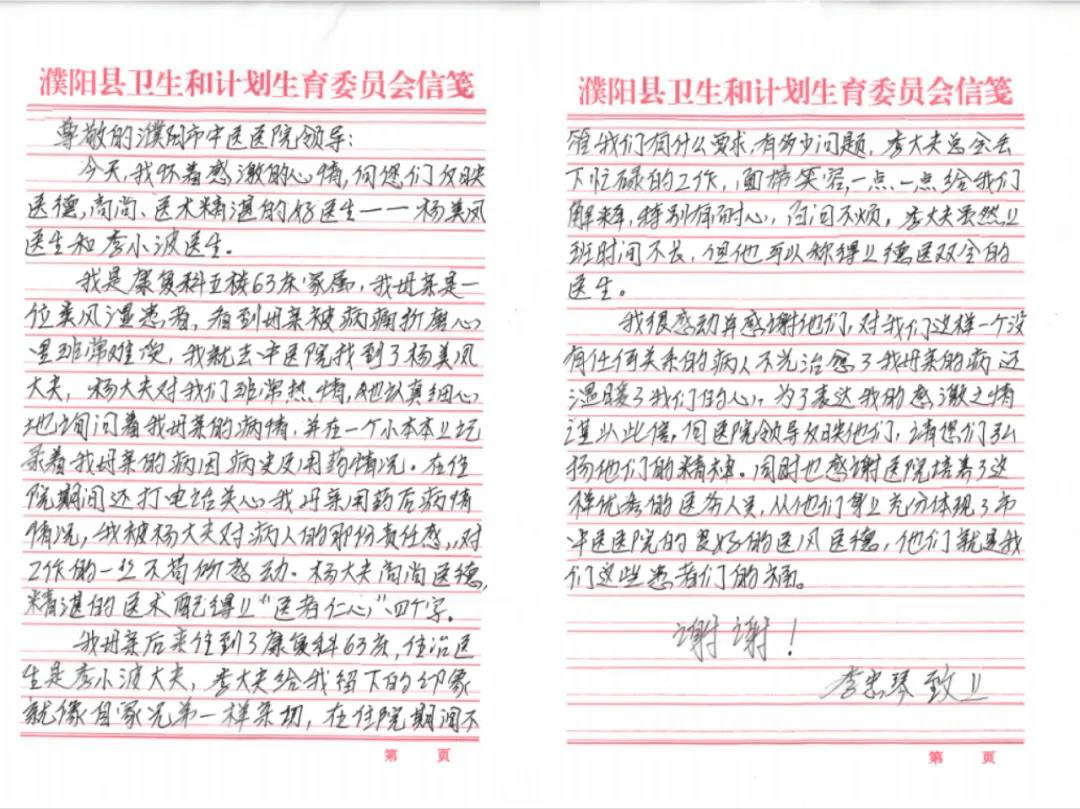 濮阳县卫生和计划生育委员会信笺
尊敬的濮阳市中医医院领导：
今天，我怀着感激的心情，向您们反映
医德，高尚、医术精湛的好医生——杨美凤
医生和李小波医生。
我是康复科五楼63床家属，我母亲是一
位类风湿患者，看到母亲被病痛折磨心
里非常难受，我就去中医院找到了杨美凤
大夫，杨大夫对我们非常热情，她认真细心
地询问着我母亲的病情，并在一个小本本上记
录着我母亲的病因病史及用药情况。在住
院期间还打电话关心我母亲用药后病情
情况，我被杨大夫对病人的那份责任感，对
工作的一丝不苟所感动。杨大夫高尚医德，
精湛的医术配得上“医者仁心”四个字。
我母亲后来住到了康复科63床，住治医
生是李小波大夫，李大夫给我留下的印象
就像自家兄弟一样亲切，在住院期间不
第 页
濮阳县卫生和计划生育委员会信笺
管我们有什么要求，有多少问题，李大夫总会丢
下忙碌的工作，面带笑容，一点、一点给我们
解释，特别有耐心，百问不烦，李大夫虽然上
班时间不长，但他可以称得上德医双全的
医生。
我很感动并感谢他们，对我们这样一个没
有任何关系的病人不光治愈了我母亲的病还
温暖了我们的心，为了表达我的感激之情
谨以此信，向医院领导反映他们，请您们弘
扬他们的精神。同时也感谢医院培养了这
样优秀的医务人员，从他们身上充分体现了市
中医医院的良好的医风医德，他们就是我
们这些患者们的福。
谢谢！
李忠琴致上
第 页